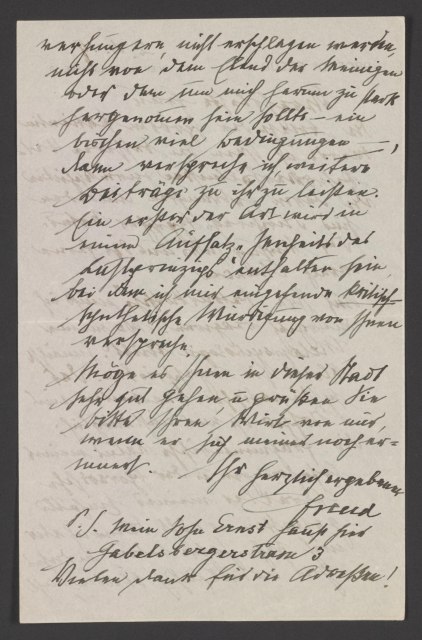 verhungere, nicht erschlagen werde,
nicht von dem Elend der Meinigen
oder dem um mich herum zu stark
hergenommen sein sollte – ein
bischen viel Bedingungen –,
dann verspreche ich weitere
Beiträge zu ihr zu leisten.
Ein erster der Art wird in
einem Aufsatz „Jenseits des
Lustprinzips“ enthalten sein,
bei dem ich mir eingehende kritisch-
synthetische Würdigung von Ihnen
verspreche.
Möge es Ihnen in dieser Stadt
sehr gut gehen, u grüßen Sie
bitte Ihren Wirt von mir,
wenn er sich meiner noch er-
innert.
Ihr herzlich ergebener
Freud
P.S. Mein Sohn Ernst haust hier
Gabelsbergerstrasse 3
Vielen Dank für die Adressen!